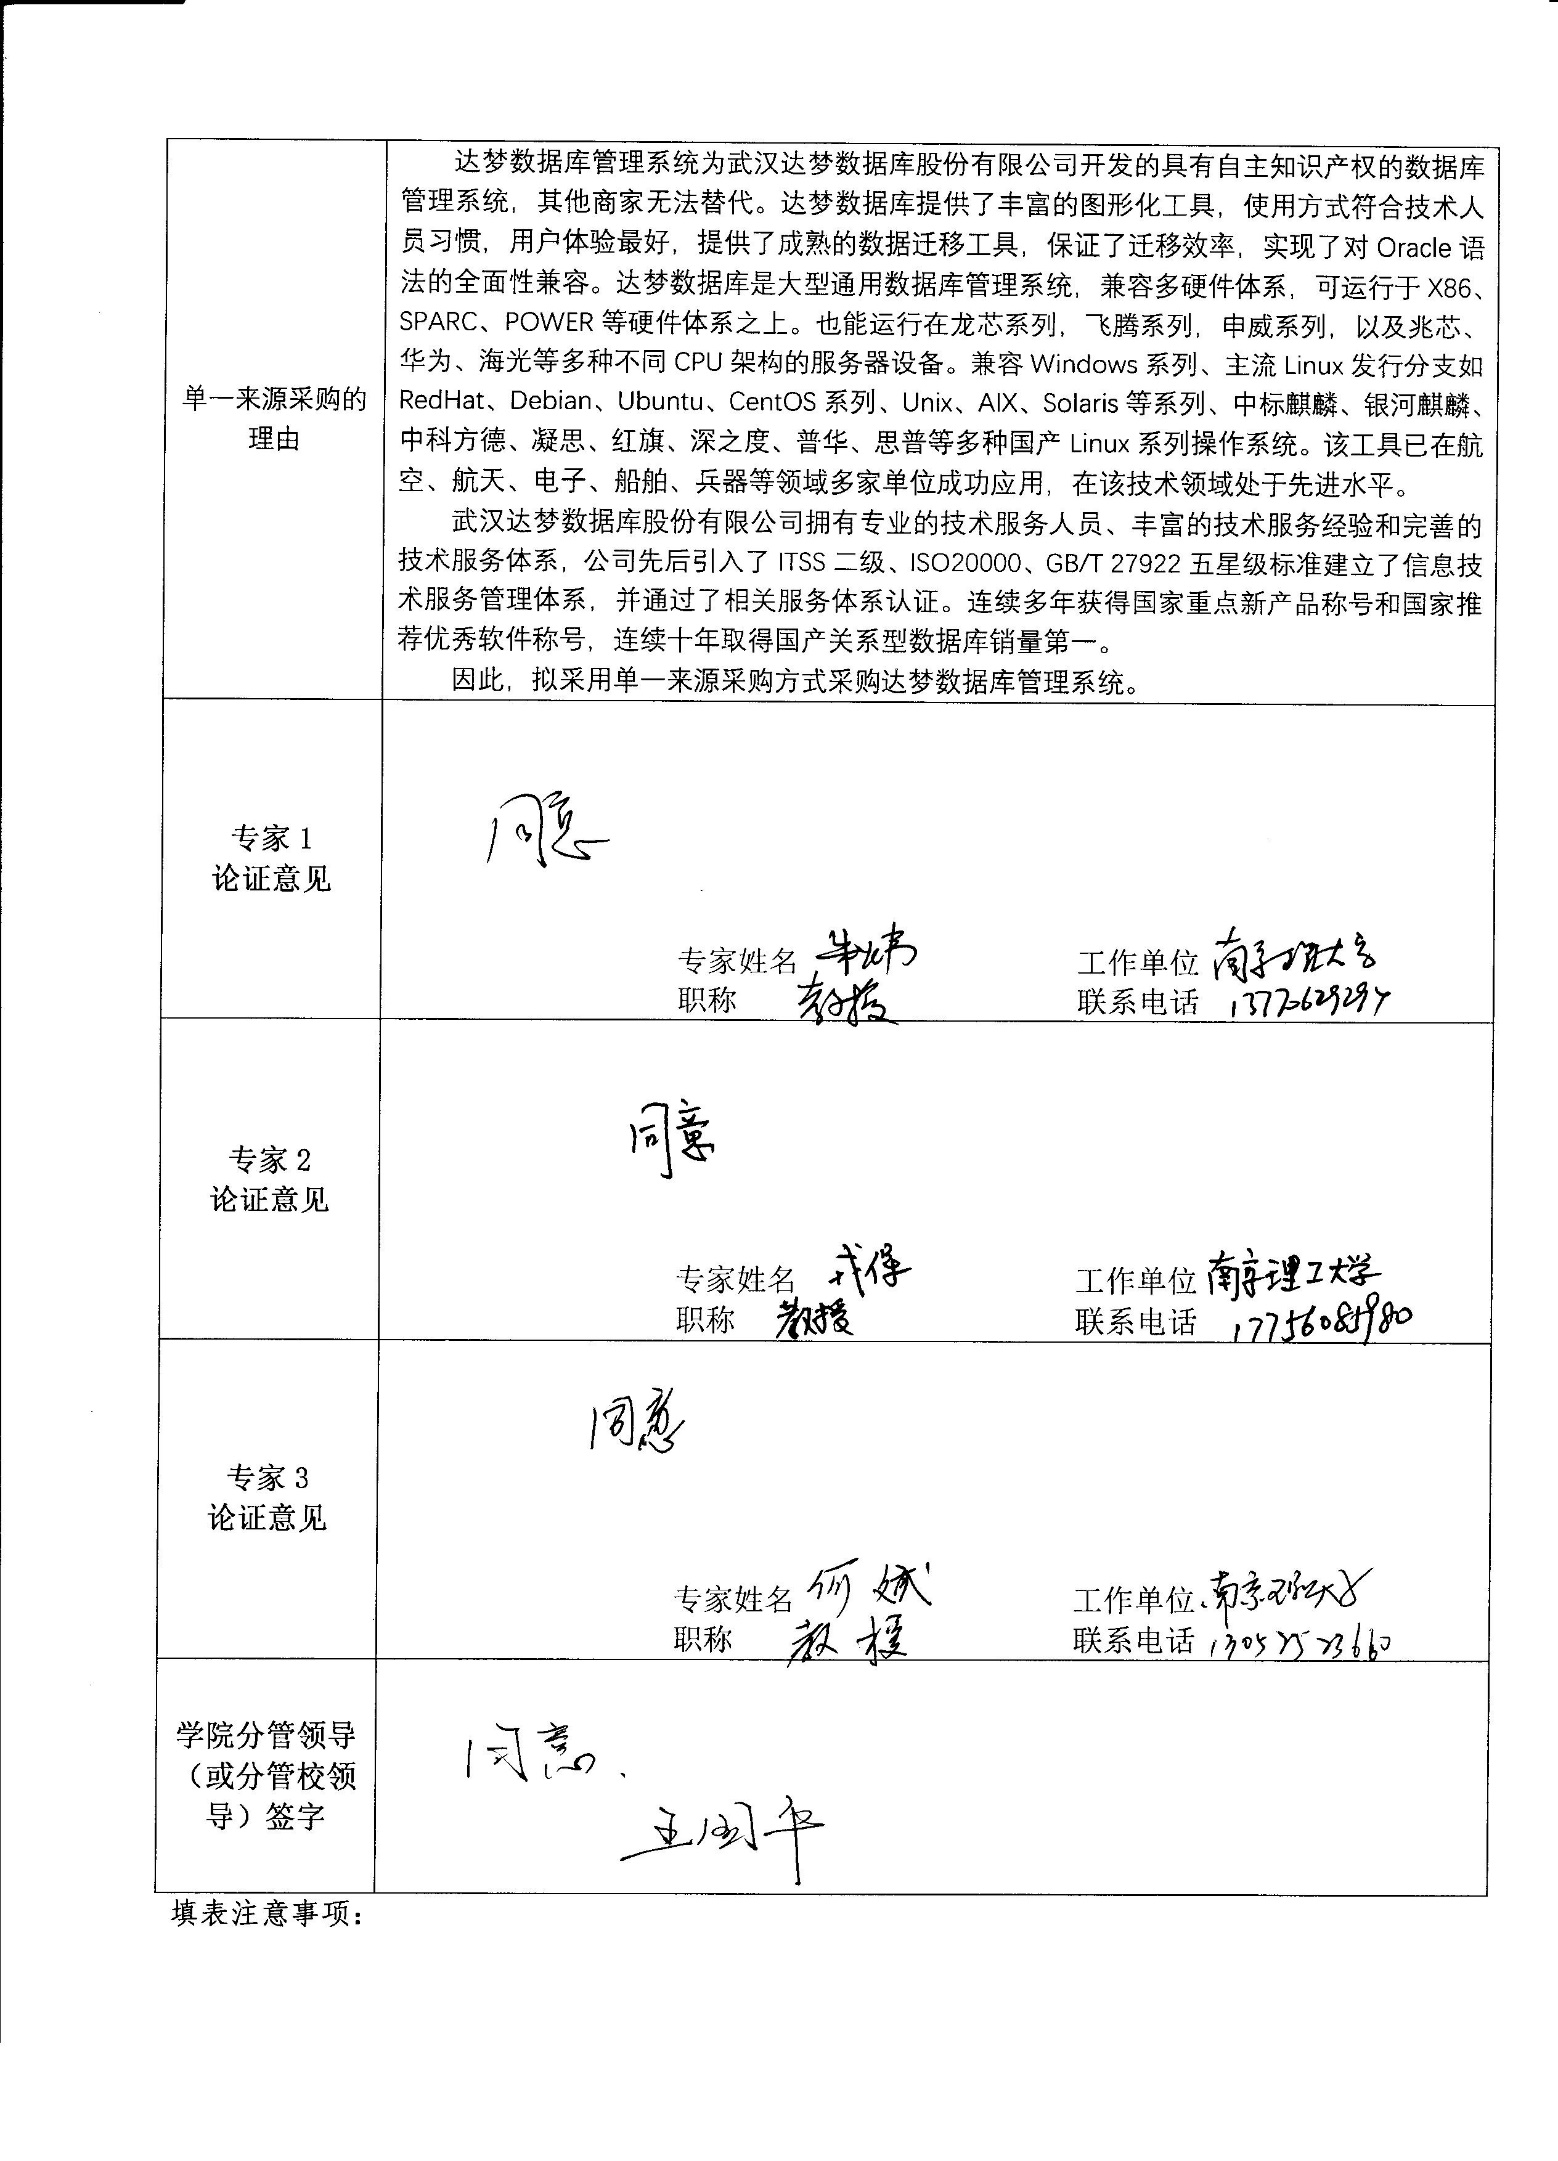 达梦数据库管理系统为武汉达梦数据库股份有限公司开发的具有自主知识产权的数据库
管理系统，其他商家无法替代。达梦数据库提供了丰富的图形化工具，使用方式符合技术人
员习惯，用户体验最好，提供了成熟的数据迁移工具，保证了迁移效率，实现了对 Oracle 语
法的全面性兼容。达梦数据库是大型通用数据库管理系统，兼容多硬件体系，可运行于 X86、
SPARC、POWER 等硬件体系之上。也能运行在龙芯系列，飞腾系列，申威系列，以及兆芯、
华为、海光等多种不同 CPU 架构的服务器设备。兼容 Windows 系列、主流 Linux 发行分支如
单一来源采购的
理由
RedHat、Debian、Ubuntu、CentOS 系列、Unix、AIX、Solaris 等系列、中标麒麟、银河麒麟、
中科方德、凝思、红旗、深之度、普华、思普等多种国产 Linux 系列操作系统。该工具已在航
空、航天、电子、船舶、兵器等领域多家单位成功应用，在该技术领域处于先进水平。
武汉达梦数据库股份有限公司拥有专业的技术服务人员、丰富的技术服务经验和完善的
技术服务体系，公司先后引入了 ITSS 二级、ISO20000、GB/T 27922 五星级标准建立了信息技
术服务管理体系，并通过了相关服务体系认证。连续多年获得国家重点新产品称号和国家推
荐优秀软件称号，连续十年取得国产关系型数据库销量第一。
因此，拟采用单一来源采购方式采购达梦数据库管理系统。
专家 1
论证意见
同意
专家姓名
工作单位 南京理工大学
职称 教授
联系电话
专家 2
论证意见
同意
专家姓名 戎保
工作单位 南京理工大学
职称 教授
联系电话 17756085980
专家 3
论证意见
同意
专家姓名 何斌
工作单位 南京理工大学
职称 教授
联系电话 13057523660
学院分管领导
（或分管校领
导）签字
同意.
王国平
填表注意事项：